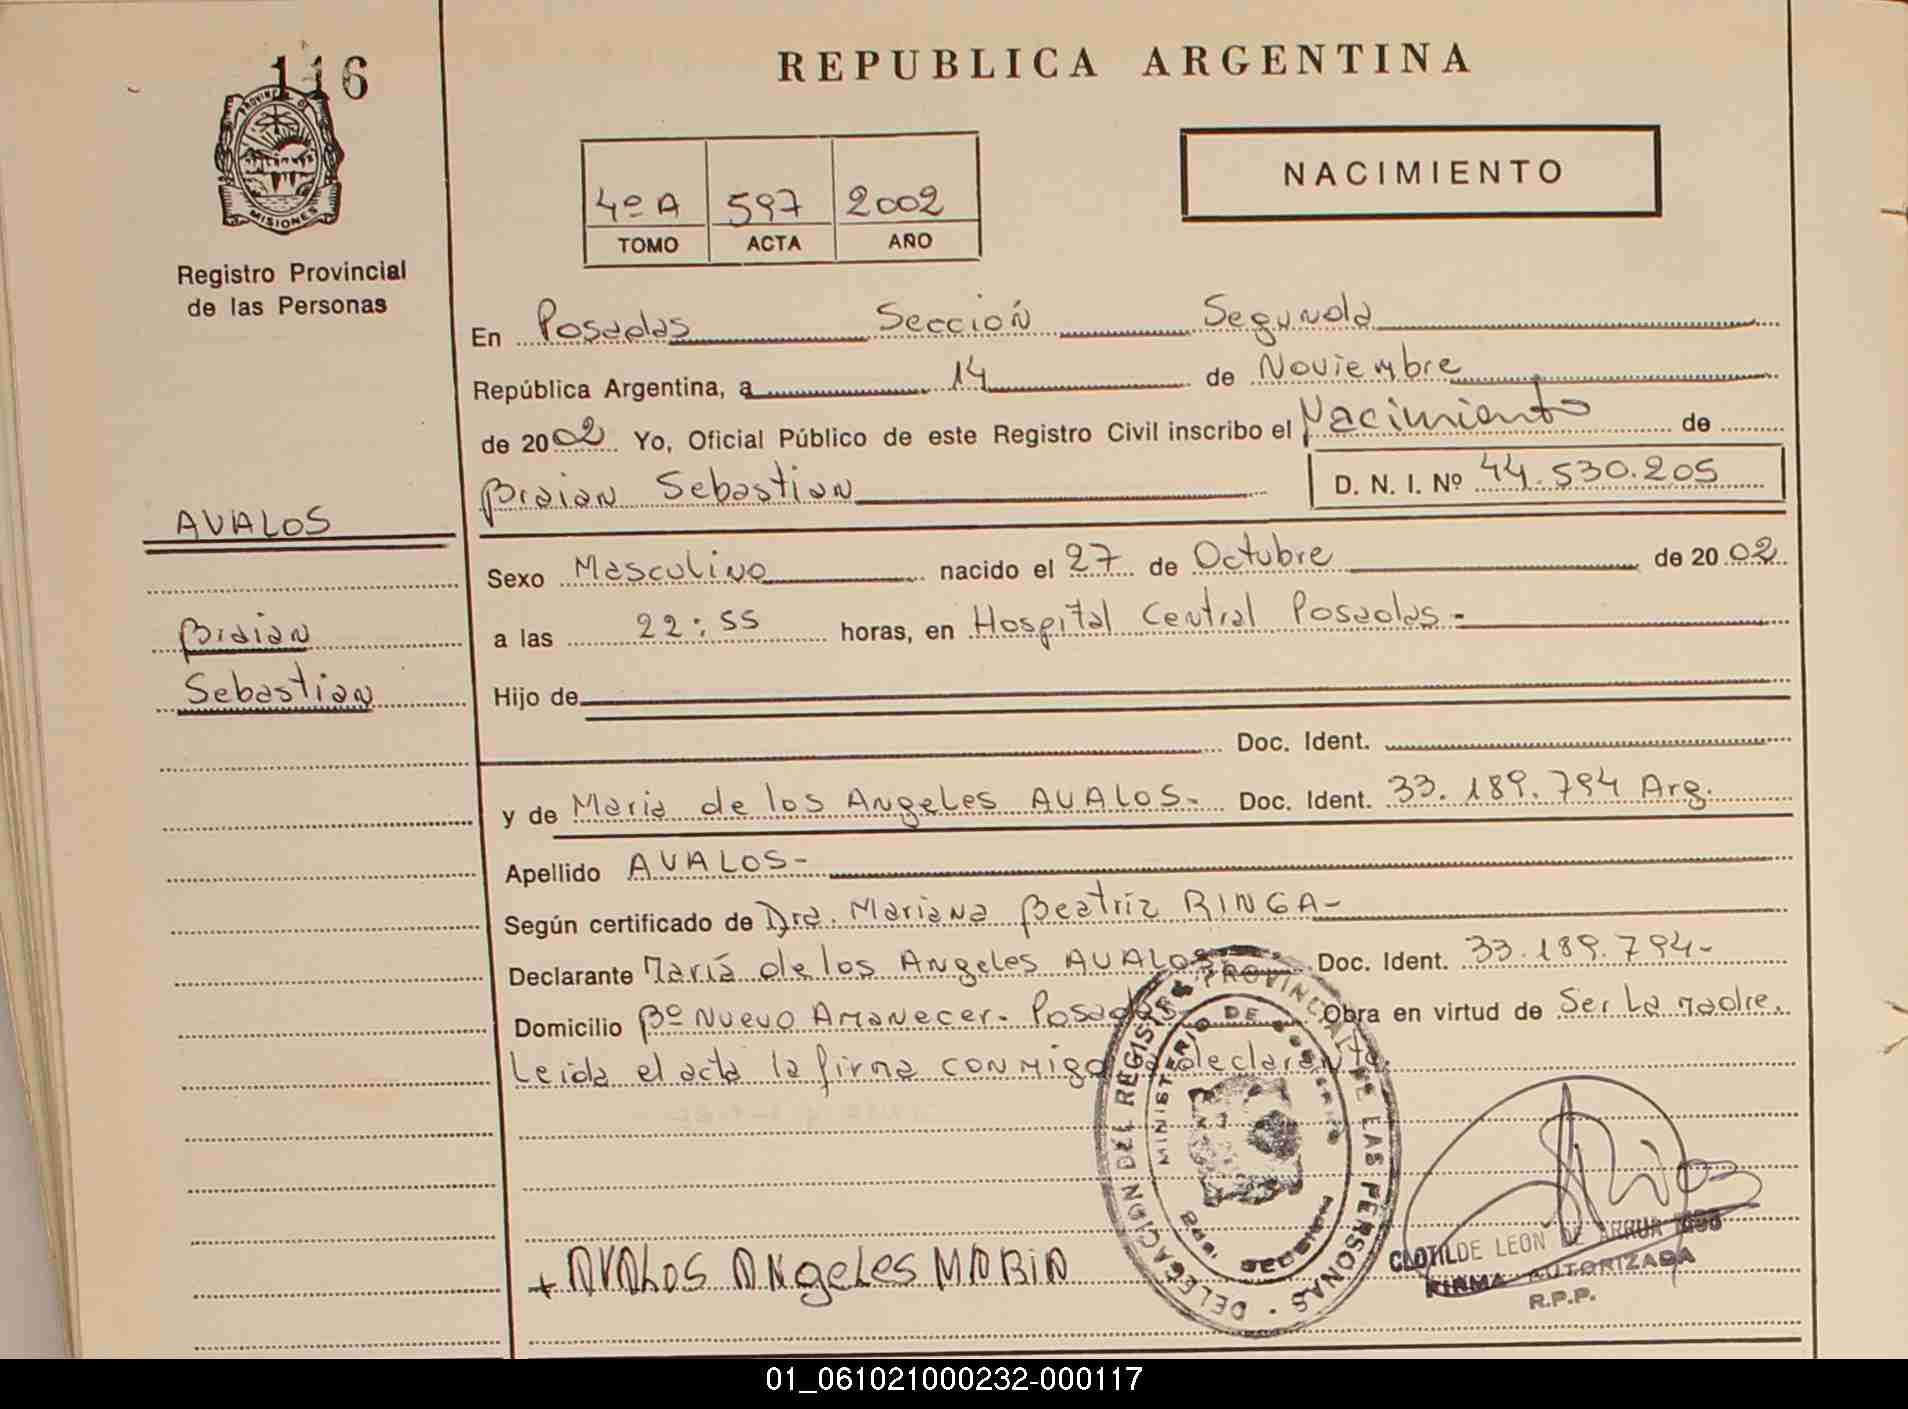 116
PROVINCIA DE
MISIONES
Registro Provincial
de las Personas
REPUBLICA ARGENTINA
4º A 597 2002
TOMO ACTA AÑO
NACIMIENTO
En Posadas Sección Segunda
República Argentina, a 14 de Noviembre
de 2002 Yo, Oficial Público de este Registro Civil inscribo el Nacimiento de
Braian Sebastian D. N. I. Nº 44.530.205
AVALOS
Braian
Sebastian
Sexo Masculino nacido el 27 de Octubre de 20 02
a las 22:55 horas, en Hospital Central Posadas-
Hijo de
Doc. Ident.
y de Maria de los Angeles AVALOS- Doc. Ident. 33.189.794 Arg.
Apellido AVALOS-
Según certificado de Dra. Mariana Beatriz RINGA-
Declarante María de los Angeles AVALOS Doc. Ident. 33.189.794-
Domicilio Bº Nuevo Amanecer- Posadas Obra en virtud de Ser La madre.
Leida el acta la firma conmigo declarante.
DELEGACION DEL REGISTRO PROVINCIAL DE LAS PERSONAS
MINISTERIO DE
+ AVALOS ANgeLes MARIA
CLOTILDE LEON DE
FIRMA AUTORIZADA
R.P.P.
01_061021000232-000117